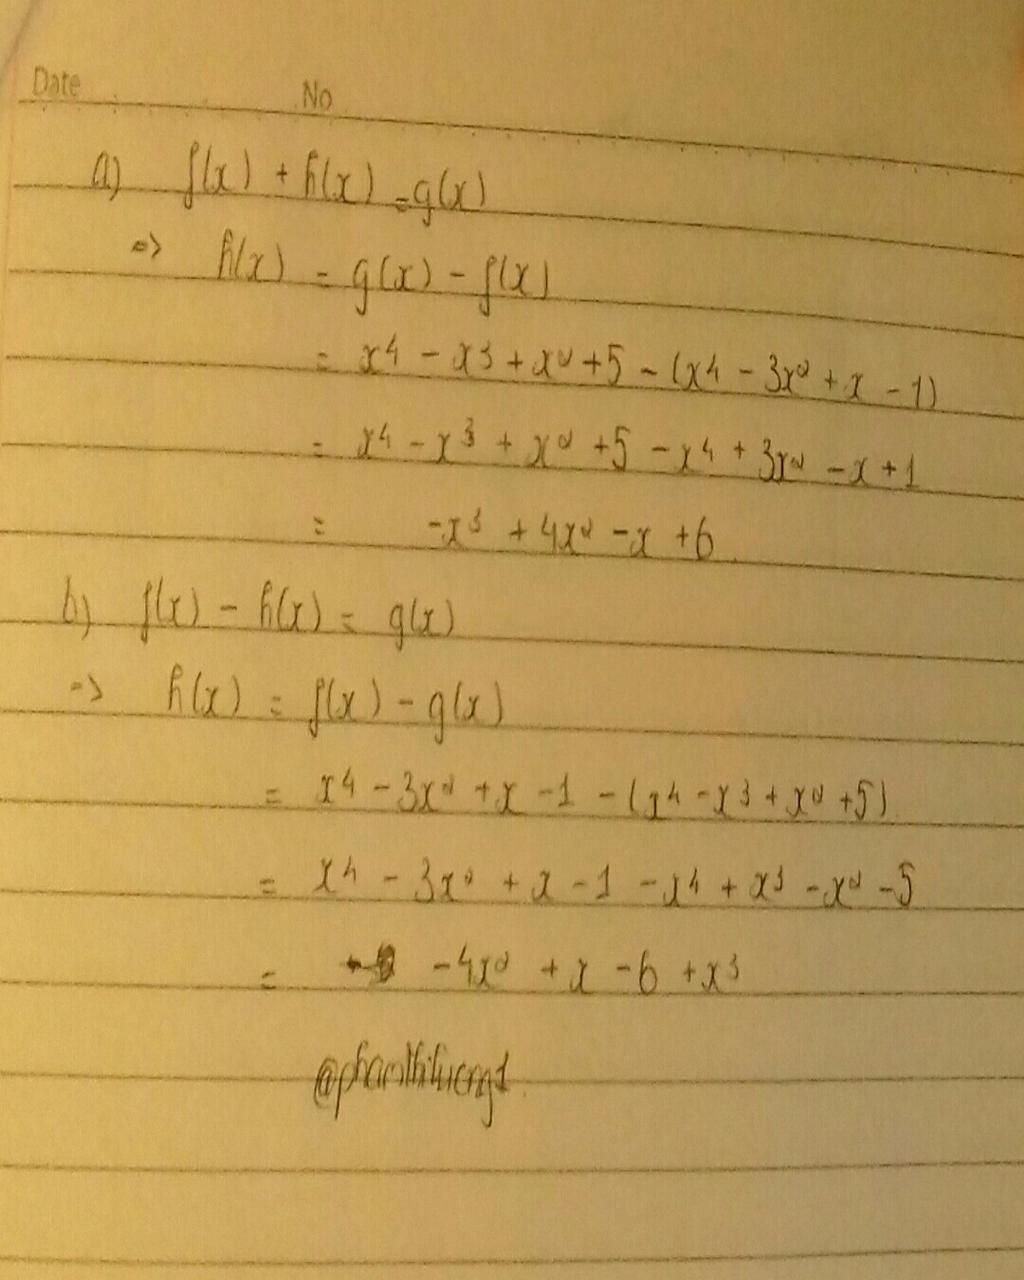 Date No
a) f(x) + h(x) = g(x)
=> h(x) = g(x) - f(x)
= x⁴ - x³ + x² + 5 - (x⁴ - 3x² + x - 1)
= x⁴ - x³ + x² + 5 - x⁴ + 3x² - x + 1
= -x³ + 4x² - x + 6
b) f(x) - h(x) = g(x)
=> h(x) = f(x) - g(x)
= x⁴ - 3x² + x - 1 - (x⁴ - x³ + x² + 5)
= x⁴ - 3x² + x - 1 - x⁴ + x³ - x² - 5
= -4x² + x - 6 + x³